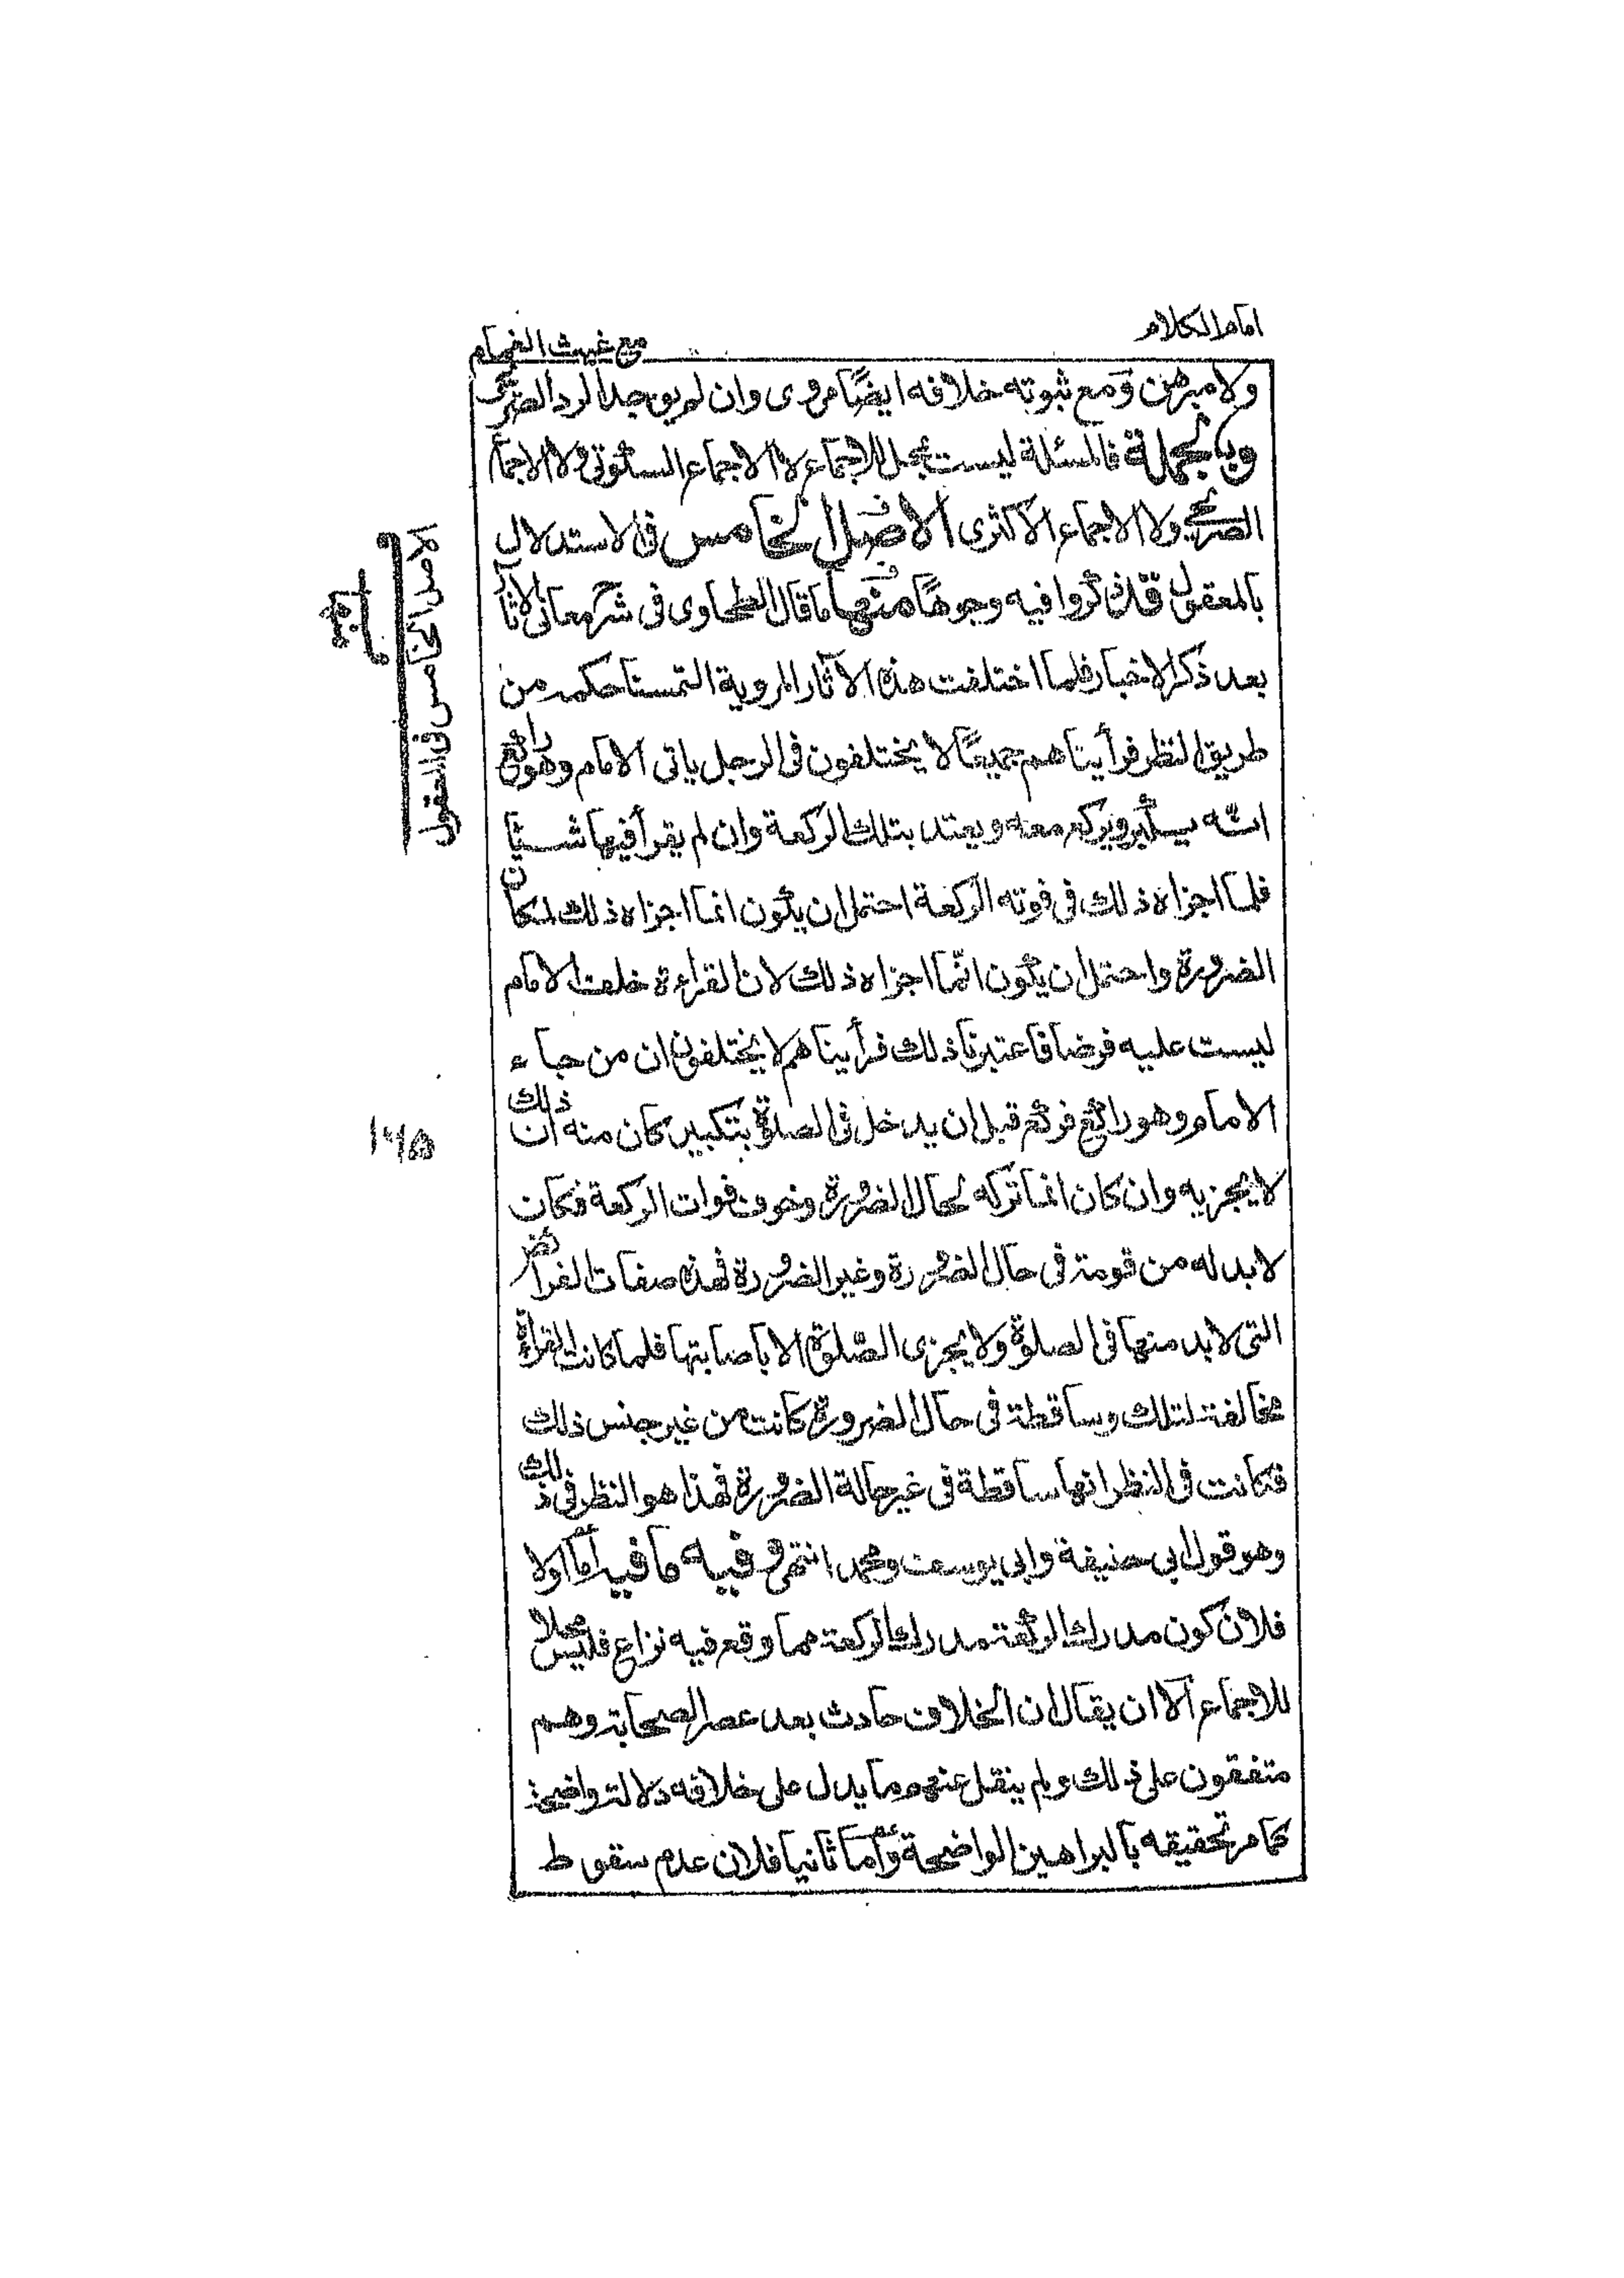 امام الكلام
مع غيث الغمام
ولا مبرهن ومع ثبوته خلافه ايضًا مروى وان لم يوجد الرد الصريح
وبالجملة فالمسئلة ليست بمحل للاجماع لا الاجماع السكوتى ولا الاجماع
الصريحى ولا الاجماع الاكثرى الاصل الخامس فى الاستدلال
بالمعقول قد ذكروا فيه وجوهًا منها ما قال الطحاوى فى شرح معانى الاثار
بعد ذكر الاخبار فلما اختلفت هذه الآثار المروية التمسنا حكمه من
طريق النظر فرأيناهم جميعًا لا يختلفون فى الرجل ياتى الامام وهو راكع
انه يكبر ويركع معه ويعتد بتلك الركعة وان لم يقرأ فيها شيئًا
فلما اجزاه ذلك فى فوته الركعة احتمل ان يكون انما اجزاه ذلك لمكان
الضرورة واحتمل ان يكون انّما اجزاه ذلك لان القراءة خلف الامام
ليست عليه فرضا فاعتبرنا ذلك فرأيناهم لا يختلفون ان من جاء
الامام وهو راكع فركع قبل ان يدخل فى الصلوة بتكبير كان منه ان ذلك
لا يجزيه وان كان انما تركه لحال الضرورة وخوف فوات الركعة فكان
لا بد له من قومة فى حال الضرورة وغير الضرورة فهذه صفات الفرائض
التى لا بد منها فى الصلوة ولا يجزى الصّلوة الا باصابتها فلما كانت القرأة
مخالفة لتلك وساقطة فى حال الضرورة كانت من غير جنس ذلك
فكانت فى النظر انها ساقطة فى غير حالة الضرورة فهذا هو النظر فى ذلك
وهو قول ابى حنيفة وابى يوسف ومحمد انتهى وفيه ما فيه امّا اولا
فلان كون مدرك الركعة مدرك الركعة مما وقع فيه نزاع فليس محلا
للاجماع الا ان يقال ان الخلاف حادث بعد عصر الصحابة وهم
متفقون على ذلك ولم ينقل عنهم ما يدل على خلافه دلالة واضحة
كما مر تحقيقه بالبراهين الواضحة وأما ثانيا فلان عدم سقوط
الاصل الخامس فى المعقول
١٦٥